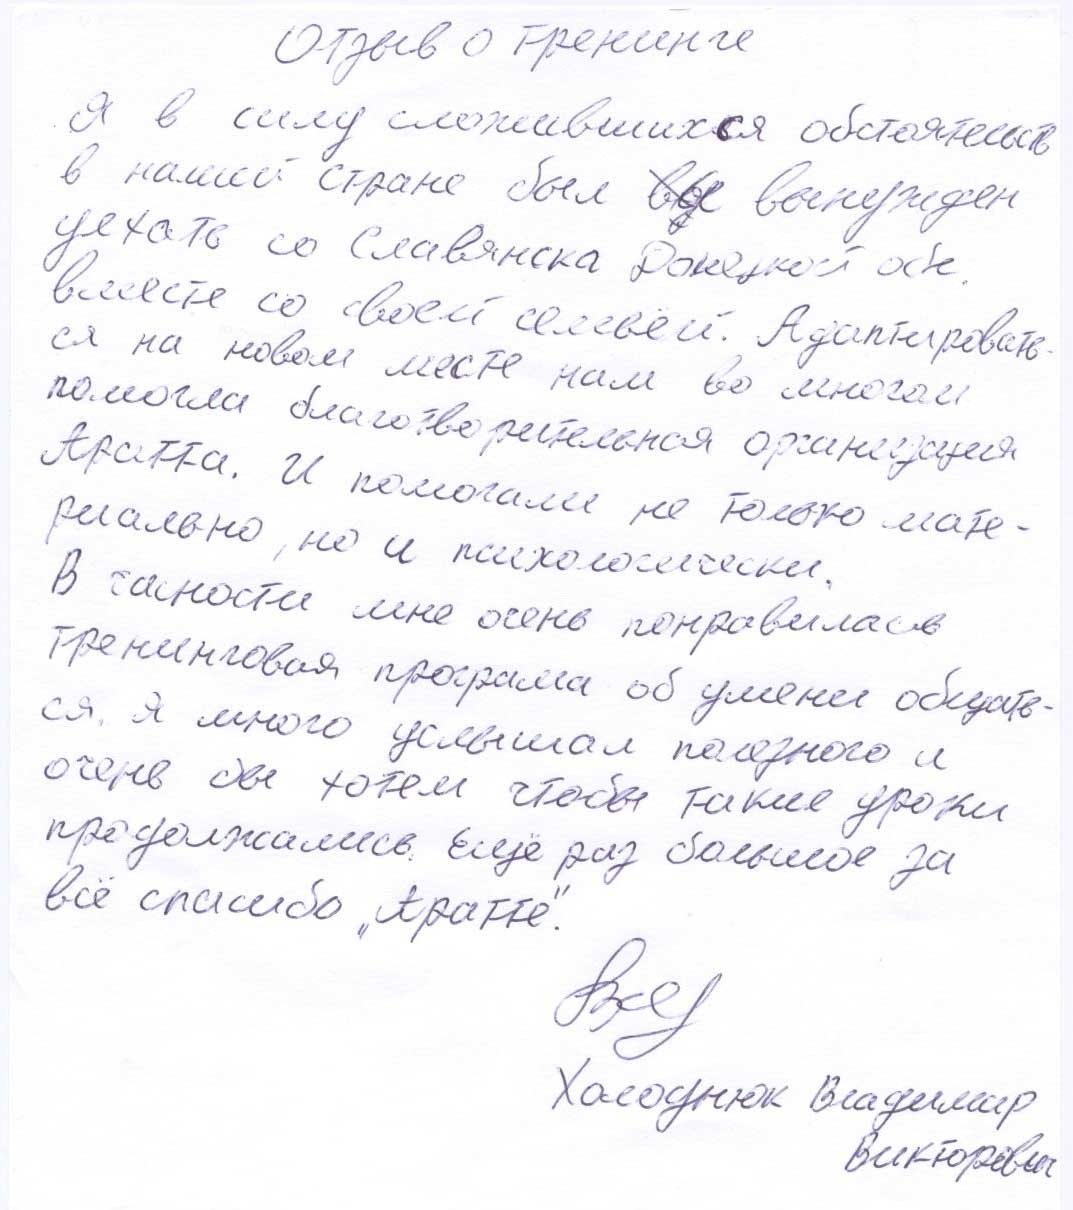 Отзыв о тренинге
Я в силу сложившихся обстоятельств
в нашей стране был вынужден
уехать со Славянска Донецкой обл.
вместе со своей семьёй. Адаптировать-
ся на новом месте нам во многом
помогла благотворительная организация
Аратта. И помогали не только мате-
риально, но и психологически.
В часности мне очень понравилась
тренинговая програма об умени общать-
ся. Я много услышал полезного и
очень бы хотел чтобы такие уроки
продолжались. Ещё раз большое за
всё спасибо „Аратте".
Холоднюк Владимир
Викторович